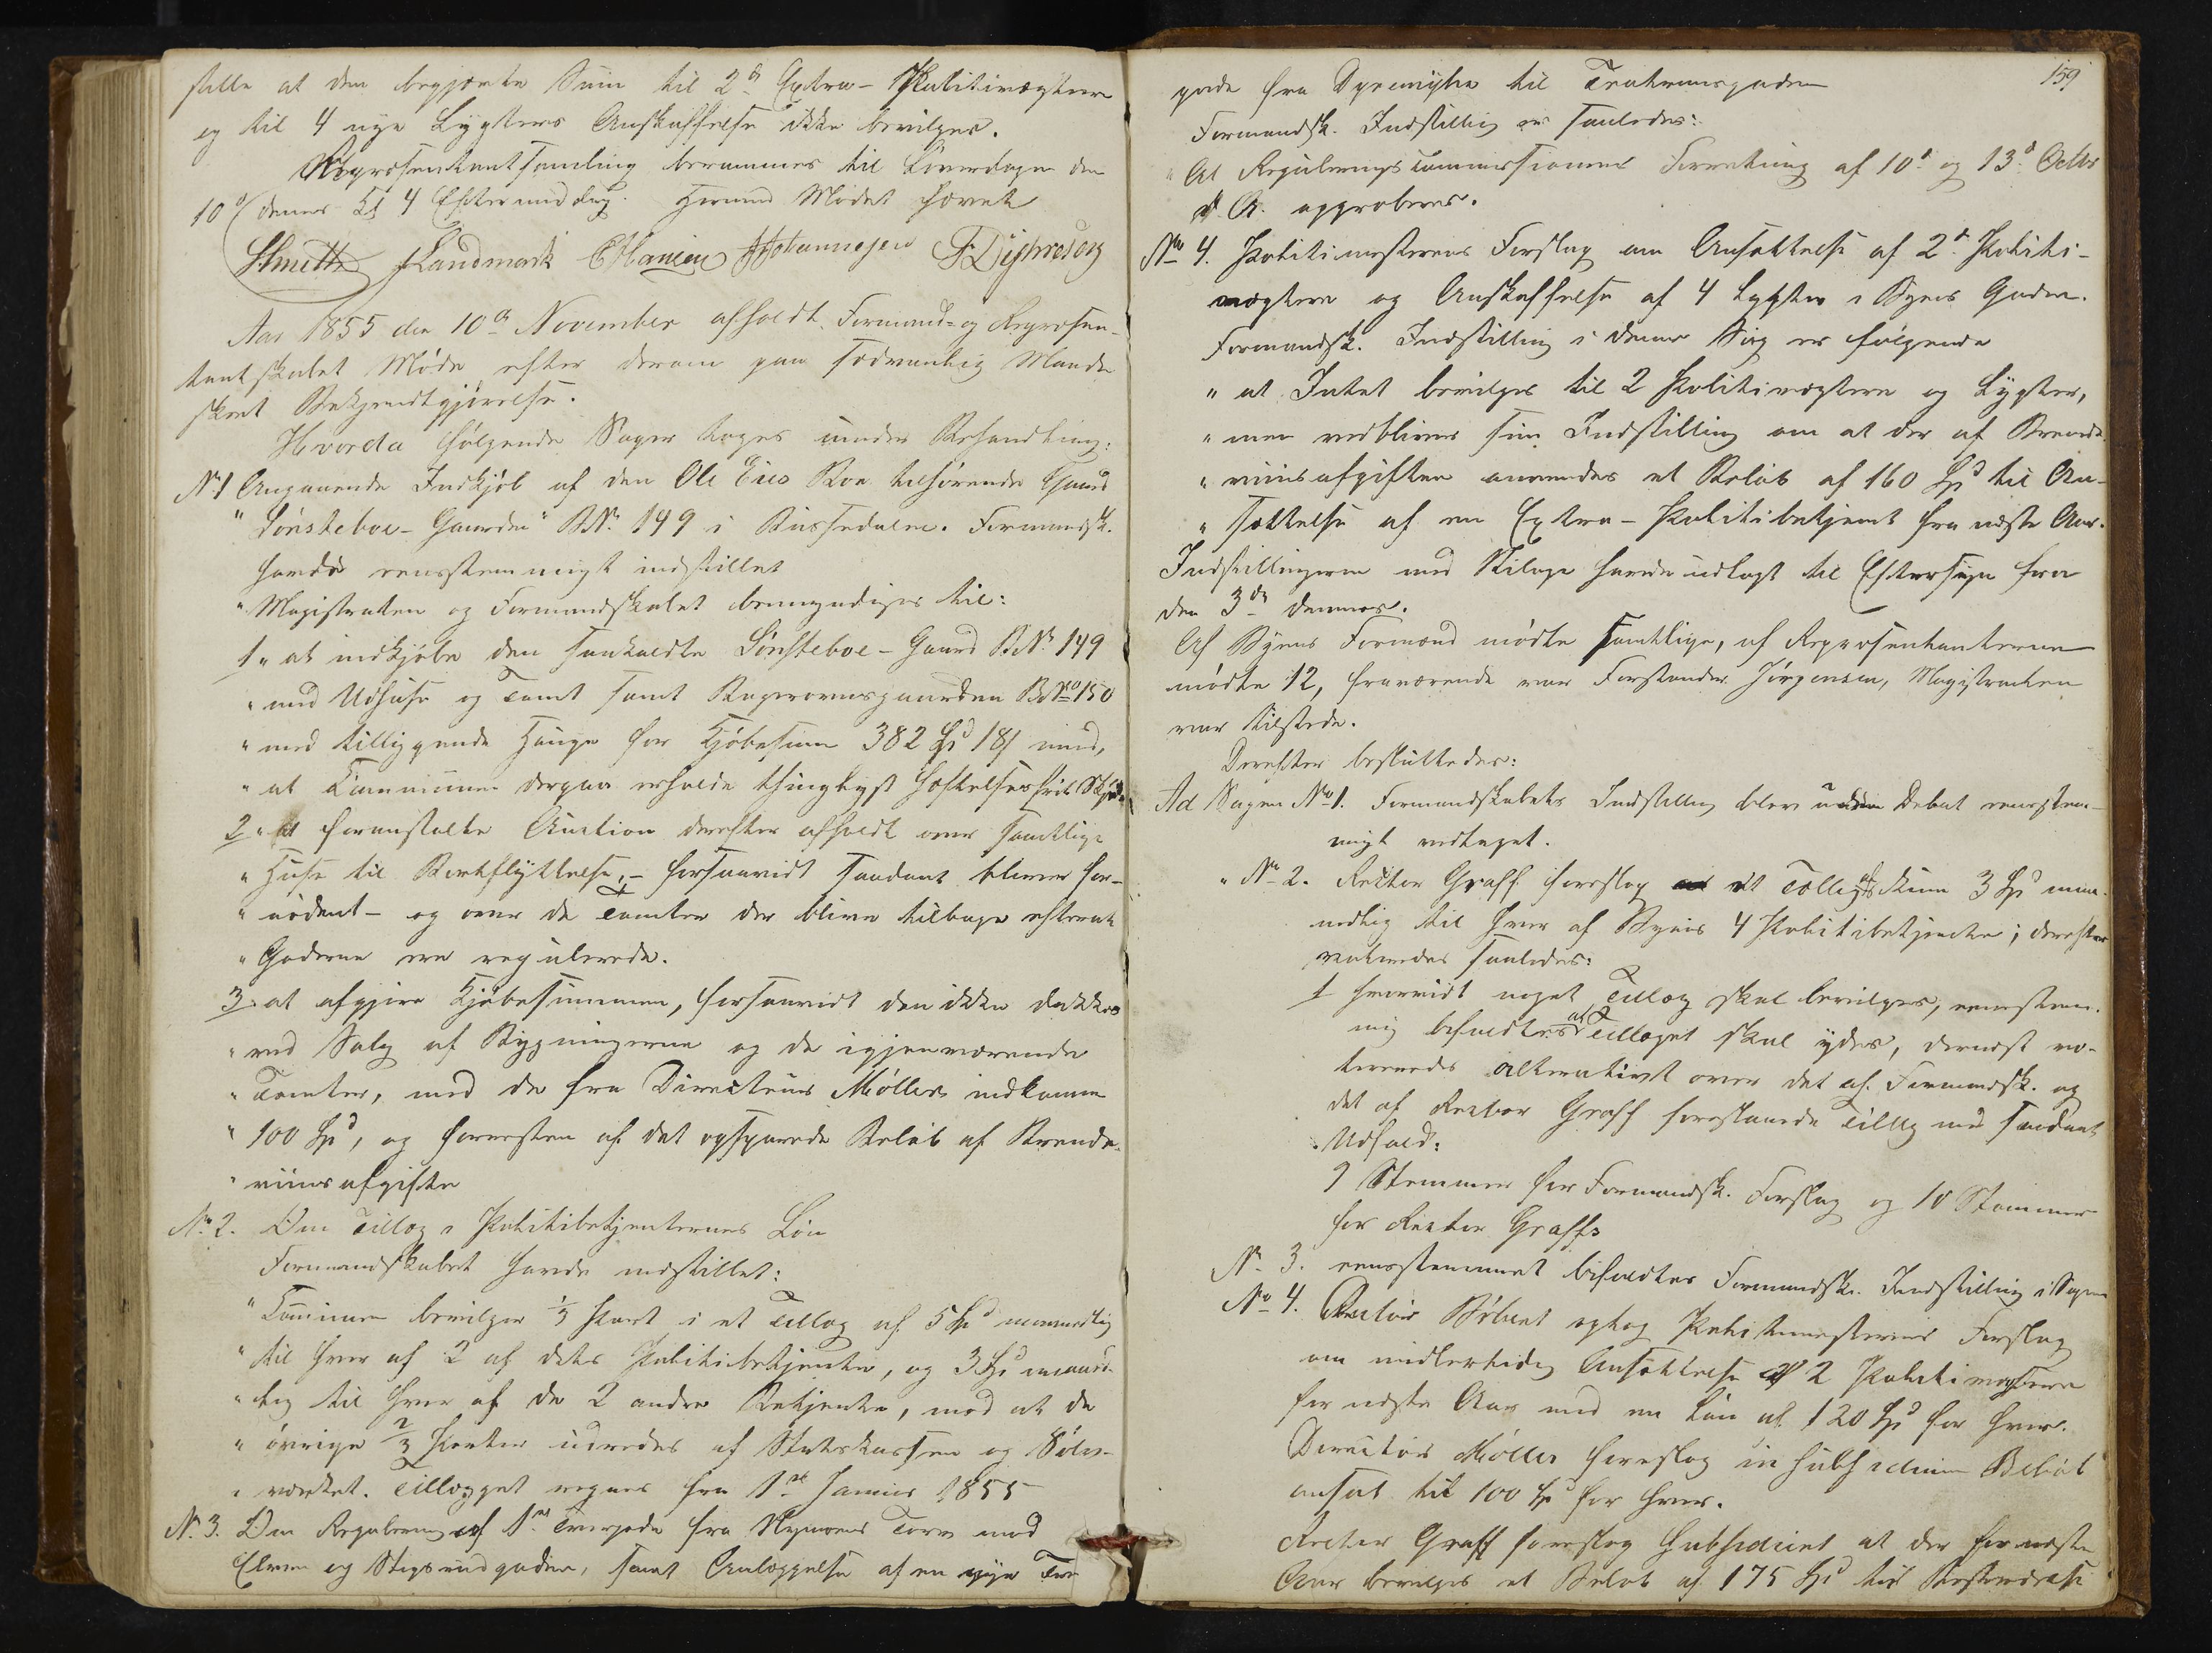 stille at den begjærte Sum til 2de Extra-Politivægtere
og til 4 nye Lygters Anskaffelse ikke bevilges.
Repræsentantsamling berammes til Løverdagen den
10de dennes Kl 4 Eftermiddag. Hermed Mødet hævet
Smith Landmark CHansen JJohannesen F. Dyhreson
Aar 1855 den 10de November afholdt Formænd- og Repræsen-
tantskabet Møde efter derom paa sædvanlig Maade
skeet Bekjendtgjørelse.
Hvorda følgende Sager toges under Behandling:
No 1 Angaaende Indkjøb af den Ole Eies Boe tilhørende Gaard
"Sønsteboe-Gaarden" B.No. 149 i Bussedalen. Formandsk.
havde eensstemmigt indstillet
"Magistraten og Formandskabet bemyndiges til:
1 " at indkjøbe den saakaldte Sønsteboe-Gaard B.No. 149
" med Udhuse og Tomt samt Bagerovnsgaarden B.No 150
" med tilliggende Hauge for Kjøbesum 382 Spd 18 s imod,
" at Communen derpaa erholde thinglyst Hæftelsesfrit Skjøde
2 " at foranstalte Auction derefter afholdt over samtlige
" Huse til Bortflyttelse, - forsaavidt saadant bliver for-
" nødent - og over de Tomter der blive tilbage efterat
" Gaderne ere regulerede.
3 " at afgjøre Kjøbesummen, forsaavidt den ikke dækkes
" ved Salg af Bygningerne og de igjenværende
" Tomter, med de fra Directeur Møller indkomne
" 100 Spd, og foresten af det opsparede Beløb af Brænde-
" viinsafgiften
No. 2. Om Tillæg i Politibetjenternes Løn
Formandskabet havde indstillet:
" Communen bevilger 1/3 Part i et Tillæg af 5 Spd maanedlig
" til hver af 2 af dets Politibetjente, og 3 Spd maaned-
" lig til hver af de 2 andre Betjente, mod at de
" øvrige 2/3 Parter udredes af Statskassen og Sølv-
" værket. Tillægget regnes fra 1ste Januar 1855
No. 3. Om Regulering af 1ste Tvergade fra Torv mod
Elven og Stigersundgaden, samt Anlæggelse af en nye Tver
159
gade fra Dyremyhr til
Formandsk. Indstilling er saaledes:
" At Reguleringscommissionens Forretning af 10de og 13de Octbr
d. A. approberes.
No 4. Politimesterens Forslag om Ansættelse af 2de Politi-
vægtere og Anskaffelse af 4 Lygter i Byens Gader.
Formandsk. Indstilling i denne Sag er følgende
" at Intet bevilges til 2 Politivægtere og Lygter,
" men vedbliver sin Indstilling om at der af Brænde-
" viinsafgiften anvendes et Beløb af 160 Spd til An-
" sættelse af en Extra-Politibetjent fra næste Aar.
Indstillingerne med Bilage havde udlagt til Eftersyn fra
den 3die dennes.
Af Byens Formænd mødte samtlige, af Repræsentanterne
mødte 12, fraværende var Forstander Jørgensen, Magistraten
var tilstede.
Derefter besluttedes:
Ad Sagen No 1. Formandskabets Indstilling blev uden Debat eensstem-
migt vedtaget.
" No 2. Rector Graff foreslog et Tillæg af kun 3 Spd maa-
nedlig til hver af Byens 4 Politibetjente; derefter
voteredes saaledes:
1 hvorvidt noget Tillæg skal bevilges, eensstem-
mig befaldtes at Tillæget skal ydes, dernæst vo-
teredes alternativt over det af Formandsk. og
det af Rector Graff foreslaaede Tillæg med saadant
Udfald:
9 Stemmer for Formandsk. Forslag og 10 Stemmer
for Rector Graffs
No. 3. eensstemmet bifaldtes Formandsk. Indstilling i Sagen
No 4. Bøbert optog Politimesterens Forslag
om midlertidig Ansættelse af 2 Politivægtere
for næste Aar med en Løn af 120 Spd for hver.
Directør Møller foreslog in subsidium Beløb
ansat til 100 Spd for hver.
Rector Graff foreslog subsidiert at der for næste
Aar bevilges et Beløb af 175 Spd til